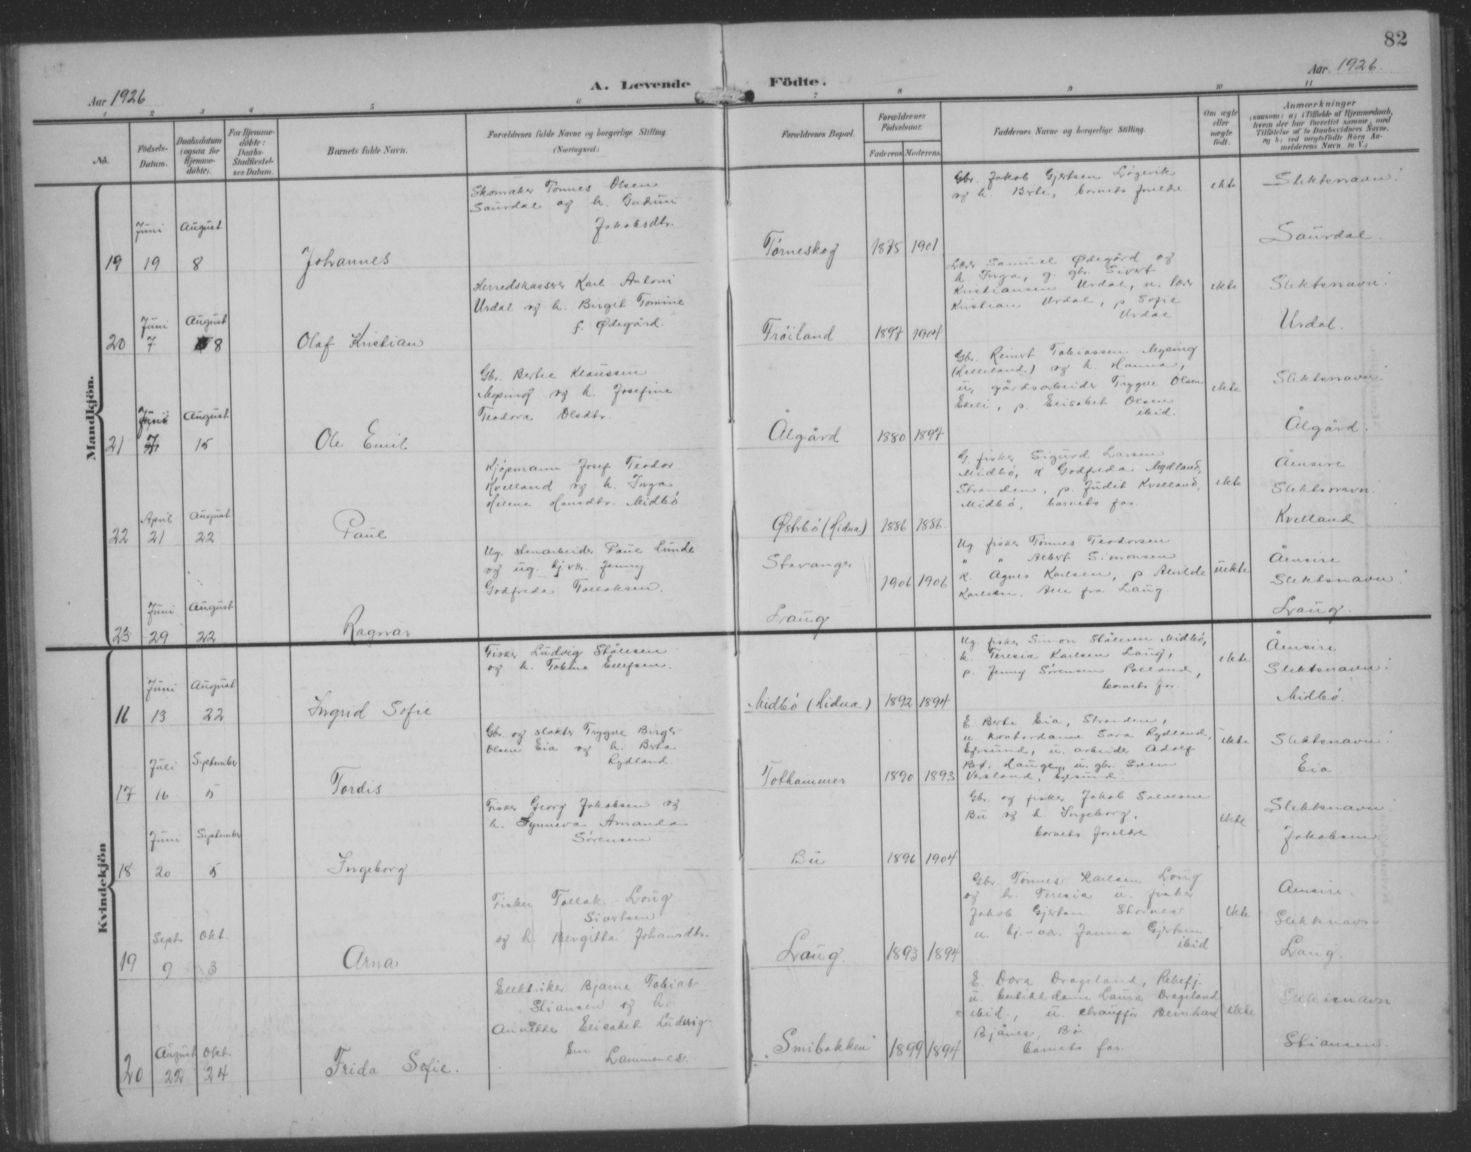 82
Aar 1926
A. Levende Födte.
Aar 1926.
1 2 3 4 5 6 7 8 9 10 11
No.
Födsels-Datum.
Daabsdatum (ogsaa for Hjemmedöbte).
For Hjemmedöbte: Daabs-Stadfæstelses Datum.
Barnets fulde Navn.
Forældrenes fulde Navne og borgerlige Stilling. (Næringsvei.)
Forældrenes Bopæl.
Forældrenes Födselsaar.
Faderens Moderens
Faddernes Navne og borgerlige Stilling.
Om ægte eller uægte født.
Anmærkninger
Mandkjön.
19 Juni 19 August 8 Johannes
Skomaker Tönnes Olsen
Saurdal og h. Gudrun
Jakobsdtr.
Tørneskog 1875 1901
Gbr. Jakob Gjertsen Løgevik
og h. Berte, barnets foreldre
ekte
Slektsnavn:
Saurdal.
20 Juni 7 August 8 Olaf Kristian
Herredskasserer Karl Antoni
Urdal og h. Birgit Tomine
f. Ødegård.
Frøiland 1897 1904
Lærer Samuel Ødegård og
h. Inga, g. gbr. Sivert
Kristiansen Urdal, u. lærer
Kristian Urdal, p. Sofie
Urdal
ekte
Slektsnavn:
Urdal.
21 Juni 7 August 15 Ole Emil
Gbr. Bertie Klaussen
Mysing og h. Josefine
Teodora Olsdtr.
Ålgård 1880 1897
Gbr. Reinert Tobiassen Mysing
(Kvelland) og h. Hanna,
u. gårdsarbeider Trygve Olsen
Eseli, p. Elisabet Olsen
ibid.
ekte
Slektsnavn:
Ålgård.
22 April 21 August 22 Paul
Kjøpmann Josef Teodor
Kvelland og h. Inga
Helene Hansdtr. Midbö
Østebö (Hidra) 1886 1886
G. fisker Sigurd Larsen
Midbö, k. Godfreda Mydland,
Stranden, p. Judit Kvelland,
Midbö, barnets far.
ekte
Åensire
Slektsnavn:
Kvelland
23 Juni 29 August 22 Ragnar
Ug. stenarbeider Paul Lunde
og ug. tj.vk. Jenny
Godfreda Tollaksen.
Stavanger
1906 1906
Laug
Ug. fisker Tönnes Teodorsen
" " Albert Simonsen
k. Agnes Karlsen, p. Alvilde
Karlsen. Alle fra Laug
uekte
Åensire
Slektsnavn:
Laug.
Kvindekjön
16 Juni 13 August 22 Ingrid Sofie
Fisker Ludvig Stålesen
og h. Tobine Ellefsen.
Midbö (Hidra) 1892 1894
Ug. fisker Simon Stålesen Midbö,
k. Teresia Karlsen Laug,
p. Jenny Sørensen Rolland,
barnets far.
ekte
Åensire
Slektsnavn:
Midbö.
17 Juli 16 September 5 Tordis
Gbr. og slakter Trygve Birger
Olsen Eia og h. Berta
Rydland.
Tothammer 1890 1893
E. Berte Eia, Stranden,
u. kontordame Sara Rydland,
Egersund, u. arbeider Adolf
Haugen, u. gbr. Sven
ekte
Slektsnavn:
Eia
18 Juni 20 September 5 Ingeborg
Fisker Georg Jakobsen og
h. Synneva Amanda
Sörensen
Bu 1896 1904
Gbr. og fisker Jakob Salvesen
Bu og h. Ingeborg,
barnets foreldre
ekte
Slektsnavn:
Jakobsen
19 Sept. 9 Okt. 3 Arna
Fisker Tollak Laug
Sivertsen
og h. Bergitha Johansdtr.
Laug. 1893 1894
Gbr. Tönnes Karlsen Laug
og h. Teresia u. fisker
Jakob Gjertsen
u. tj.-vk. Janna Gjertsen
ibid
ekte
Åensire.
Slektsnavn
Laug.
20 August 22 Okt. 24 Frida Sofie.
Elektriker Bjarne Tobias
Stiansen og h.
Annette Elisabet Ludvig-
sen Lammenes.
Smibakken 1899 1894
E. Dora Drageland, Rekefj.
u. butikkdame Laura Drageland
ibid, u. chauffør Bernhard
Bjånes, Bö
barnets far.
ekte
Slektsnavn
Stiansen.